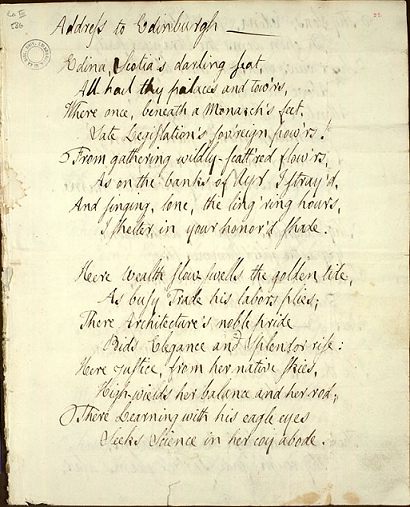 Address to Edinburgh
Edina, Scotia's darling seat,
All hail thy palaces and tow'rs,
Where once, beneath a Monarch's feet,
Sate Legislation's sov'reign pow'rs!
From gathering wildly-scatt'red flow'rs,
As on the banks of Ayr I stray'd,
And singing, lone, the ling'ring hours,
I shelter in your honor'd shade.
Here Wealth swells the golden tide,
As busy Trade his labors plies;
There Architecture's noble pride
Bids Elegance and Splendor rise:
Here Justice, from her native skies,
High-wields her balance and her rod;
There Learning with his eagle eyes
Seeks Science in her coy abode.